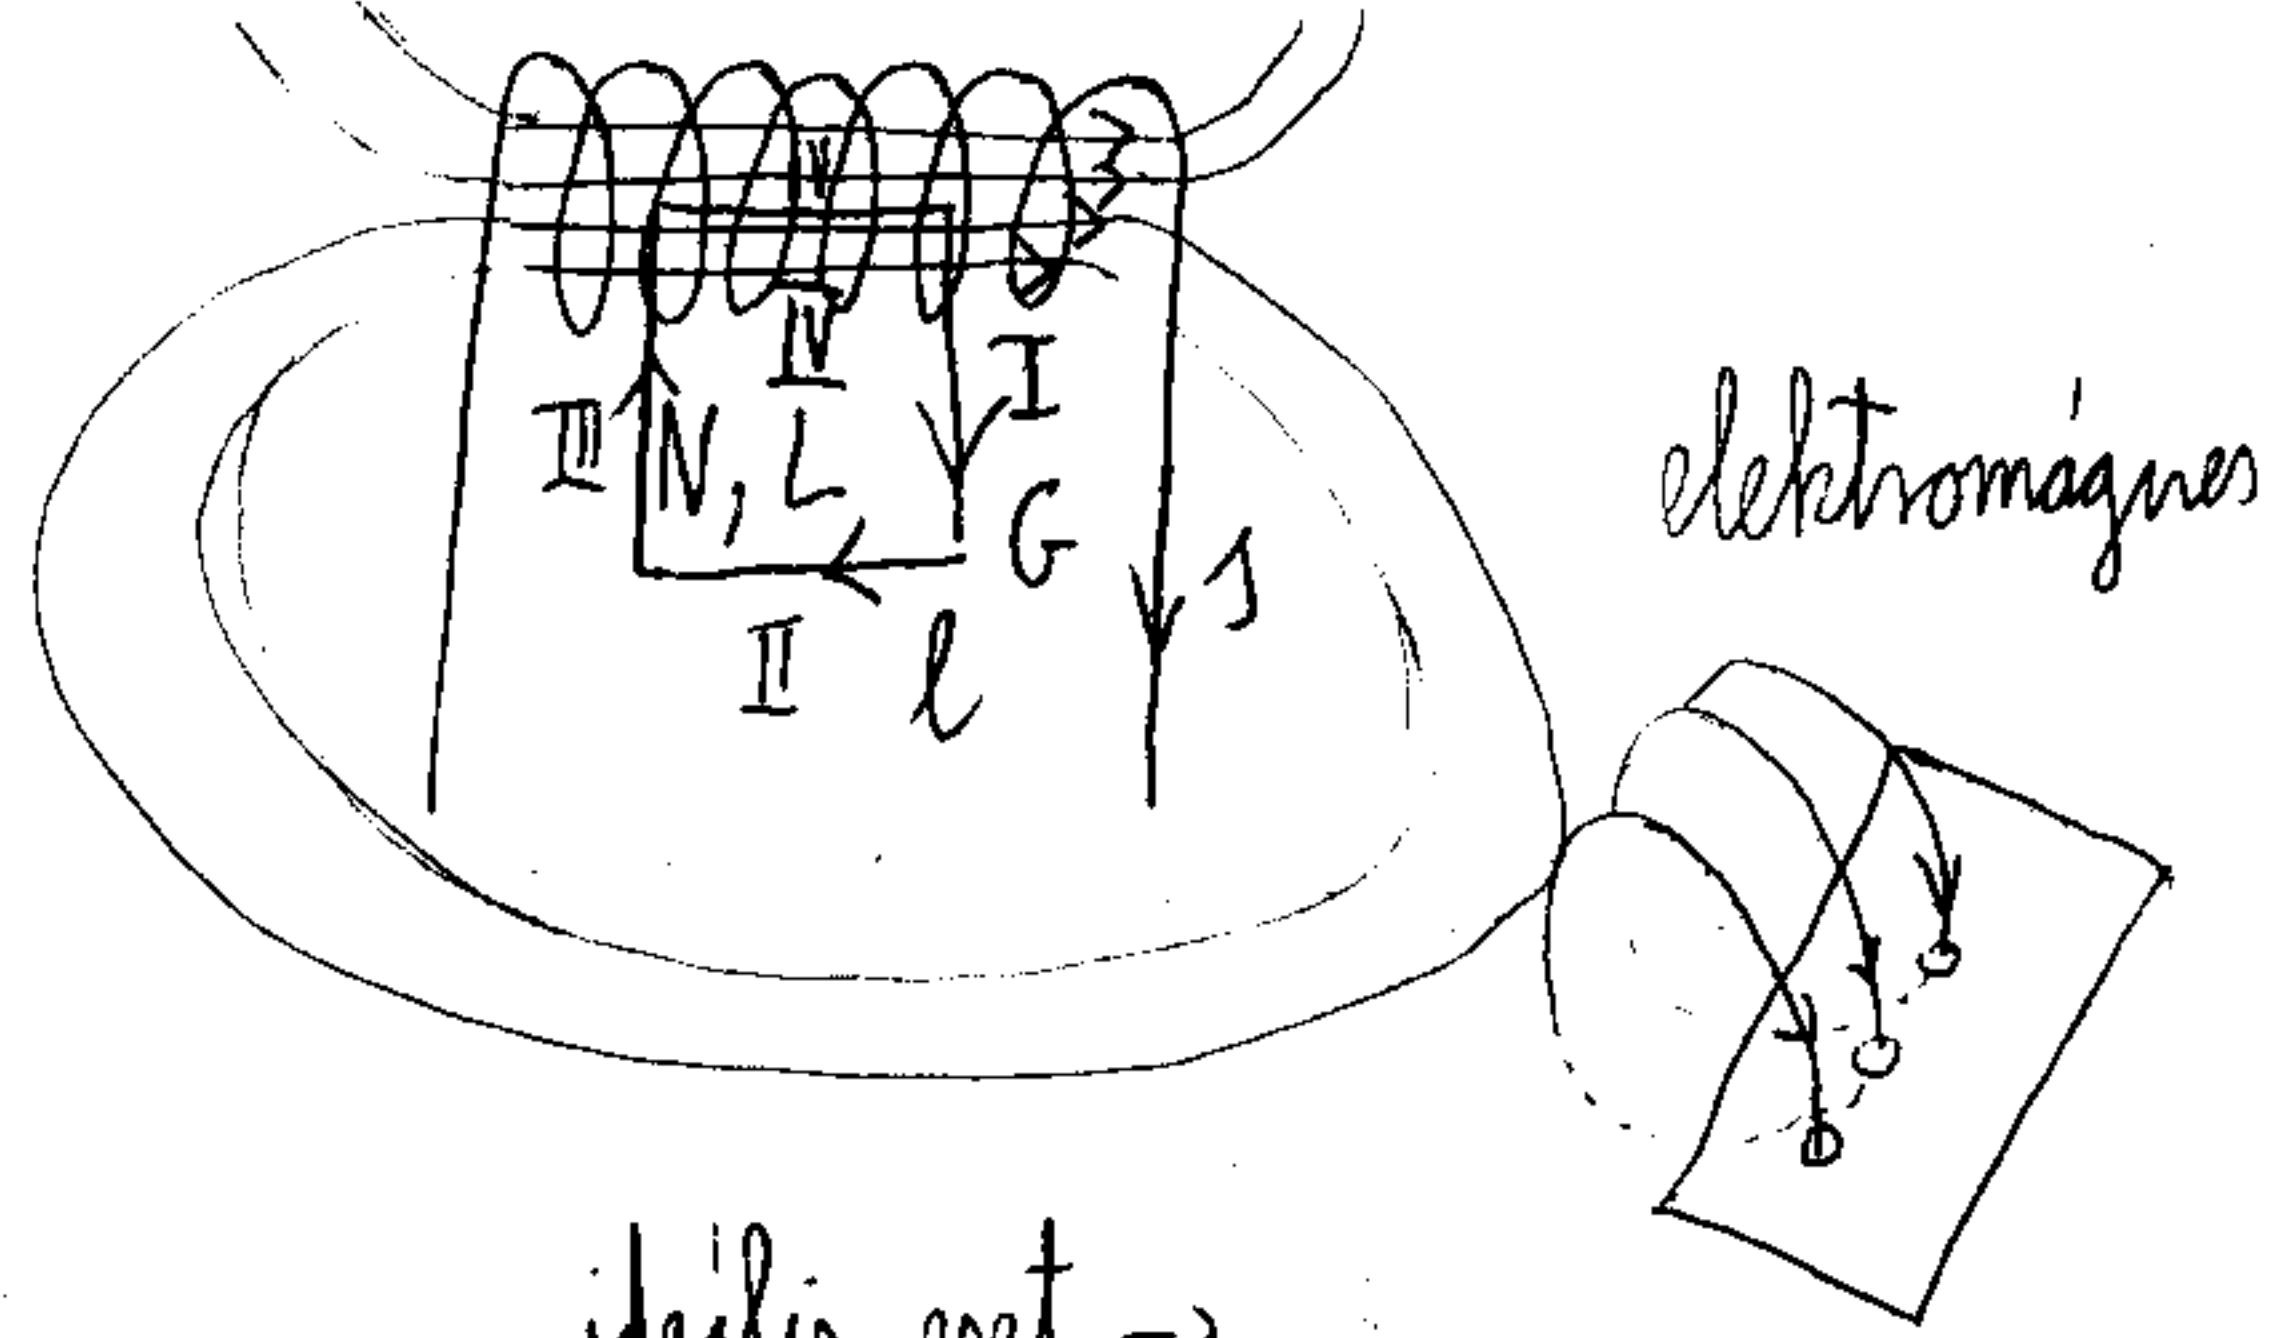 IV
I
III N, L
G
I
II l
elektromágnes
ideális eset →